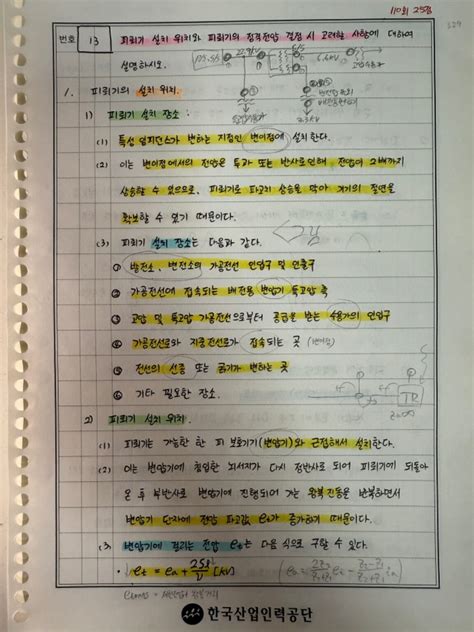 110회 25점
번호 13 피뢰기 설치 위치와 피뢰기의 정격전압 결정 시 고려할 사항에 대하여
설명하시오.
1. 피뢰기의 설치 위치.
1) 피뢰기 설치 장소 :
(1) 특성 임피던스가 변하는 지점인 변이점에 설치한다.
(2) 이는 변이점에서의 전압은 투과 또는 반사로 인해, 전압이 2배까지
상승할 수 있으므로, 피뢰기로 파고치 상승을 막아 기기의 절연을
확보할 수 있기 때문이다.
(3) 피뢰기 설치 장소는 다음과 같다.
그림
① 발전소, 변전소의 가공전선 인입구 및 인출구
② 가공전선에 접속되는 배전용 변압기 특고압 측
③ 고압 및 특고압 가공전선으로부터 공급을 받는 수용가의 인입구
④ 가공전선로와 지중전선로가 접속되는 곳
⑤ 전선의 선종 또는 굵기가 변하는 곳
⑥ 기타 필요한 장소.
TR
2) 피뢰기 설치 위치.
(1) 피뢰기는 가능한 한 피 보호기기(변압기)와 근접해서 설치한다.
(2) 이는 변압기에 침입한 뇌서지가 다시 정반사로 되어 피뢰기에 되돌아
온 후 부반사로 변압기에 진행되어 가는 왕복진동을 반복하면서
변압기 단자에 전압 파고값 et가 증가하기 때문이다.
(3) 변압기에 걸리는 전압 et는 다음 식으로 구할 수 있다.
한국산업인력공단